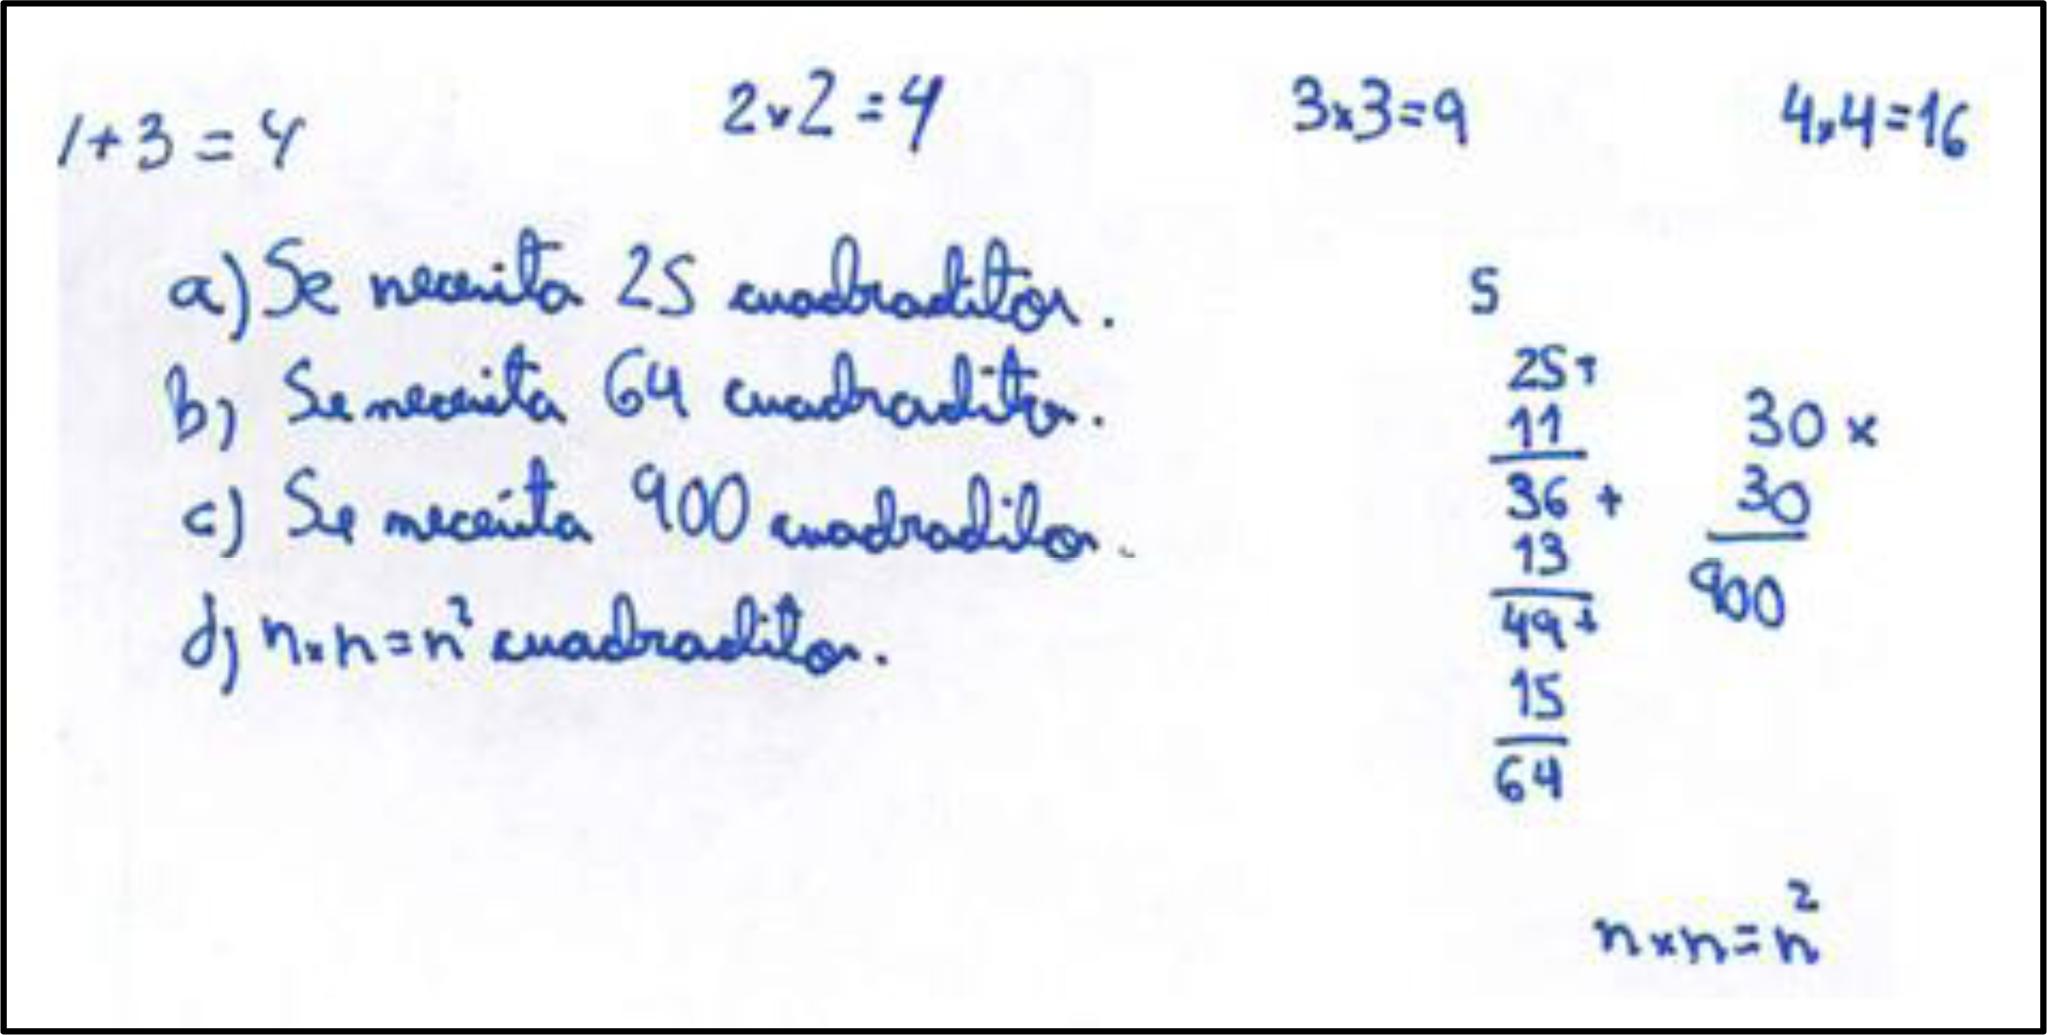 1+3=4
2x2=4
3x3=9
4x4=16
a) Se necesita 25 cuadraditos.
b) Se necesita 64 cuadraditos.
c) Se necesita 900 cuadraditos.
d) nxn=n² cuadraditos.
5
25+
11
36+
13
49+
15
64
30x
30
900
nxn=n²